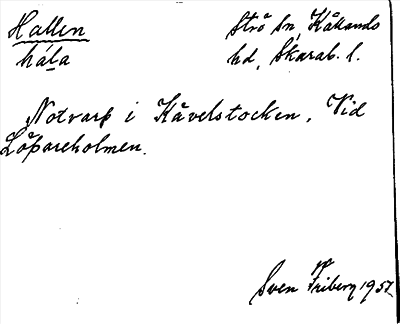 Hallen Strö sn, Kållands
hála hd, Skarab. l.
Notvarp i Kåvelstocken. Vid
Löpareholmen.
Sven Friberg 1957